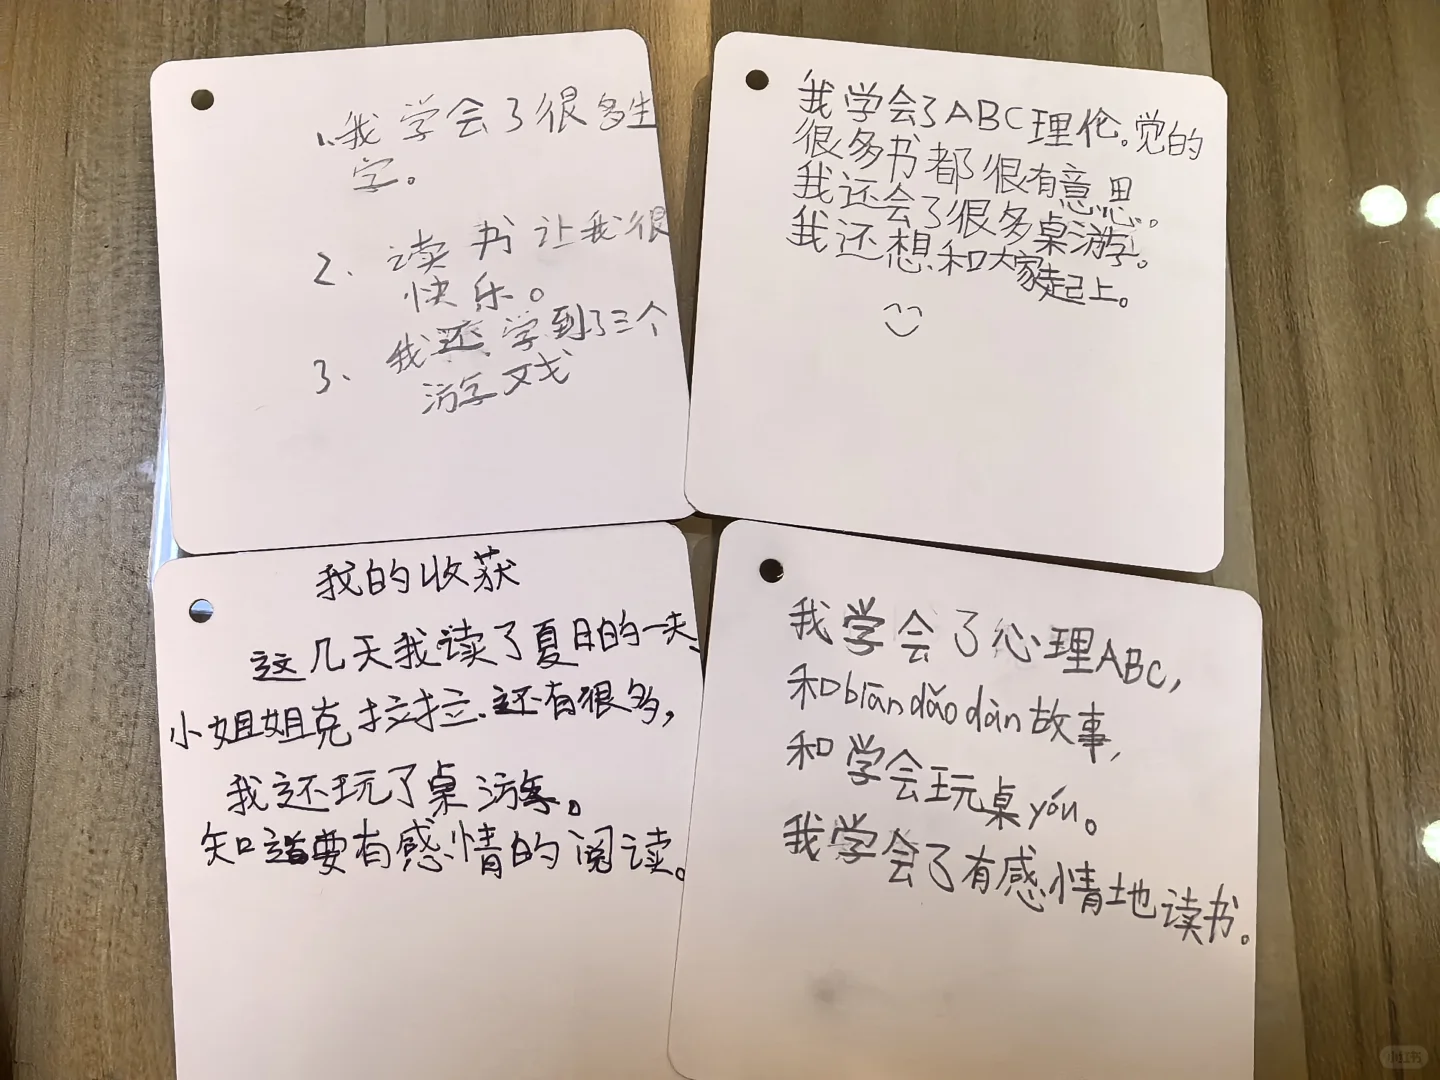 1、我学会了很多生
字。
2、读书让我很
快乐。
3、我还学到了三个
游戏
我学会了ABC理伦。觉的
很多书都很有意思。
我还会了很多桌游。
我还想和大家一起上。
我的收获
这几天我读了夏日的一天、
小姐姐克拉拉、还有很多，
我还玩了桌游。
知道要有感情的阅读。
我学会了心理ABC，
和biān dǎo dàn故事，
和学会玩桌yóu。
我学会了有感情地读书。
小红书